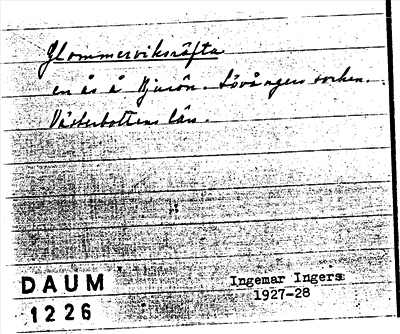 Glommersviksräfta
en ås å Bjurön. Lövångers socken.
Västerbottens län.
DAUM
1226
Ingemar Ingers
1927-28